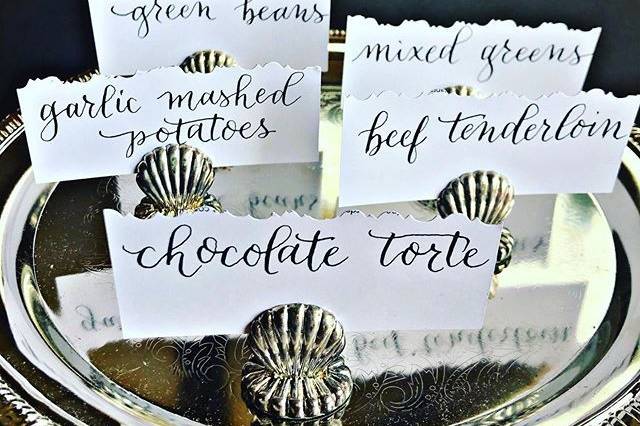 green beans
mixed greens
garlic mashed
potatoes
beef tenderloin
chocolate torte